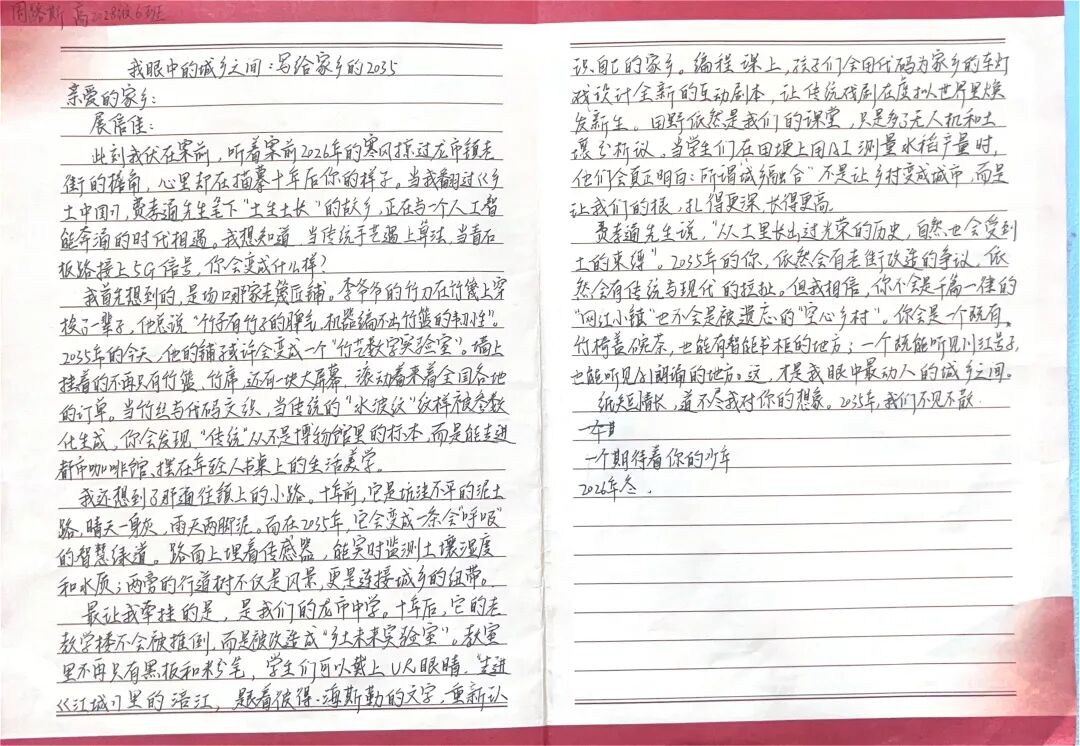 周路斯 高2028级6班
我眼中的城乡之间:写给家乡的2035
亲爱的家乡:
展信佳:
此刻我伏在案前,听着案前2026年的寒风掠过龙市镇老
街的檐角,心里却在描摹十年后你的样子。当我翻过《乡
土中国》,费孝通先生笔下“土生土长”的故乡,正在与一个人工智
能奔涌的时代相遇。我想知道,当传统手艺遇上算法,当青石
板路接上5G信号,你会变成什么样?
我首先想到的,是场口那家老篾匠铺。李爷爷的竹刀在竹篾上穿
梭了一辈子,他总说“竹子有竹子的脾气,机器编不出竹篮的韧性”。
2035年的今天,他的铺子或许会变成一个“竹艺数字实验室”。墙上
挂着的不再只有竹篮、竹席,还有一块大屏幕,滚动着来着全国各地
的订单。当竹丝与代码交织,当传统的“水波纹”纹样被参数
化生成,你会发现“传统”从不是博物馆里的标本,而是能走进
都市咖啡馆、摆在年轻人书桌上的生活美学。
我还想到了那通往镇上的小路。十年前,它是坑洼不平的泥土
路,晴天一身灰,雨天两脚泥。而在2035年,它会变成一条会“呼吸”
的智慧绿道。路面上埋着传感器,能实时监测土壤湿度
和水质;两旁的行道树不仅是风景,更是连接城乡的纽带。
最让我牵挂的是,是我们的龙市中学。十年后,它的老
教学楼不会被推倒,而是被改造成“乡土未来实验室”。教室
里不再只有黑板和粉笔,学生们可以戴上VR眼睛,走进
《江城》里的涪江,跟着彼得·海斯勒的文字,重新认
识自己的家乡。编程课上,孩子们会用代码为家乡的车灯
戏设计全新的互动剧本,让传统戏剧在虚拟世界里焕
发新生。田野依然是我们的课堂,只是多了无人机和土
壤分析议。当学生们在田埂上用AI测量水稻产量时,
他们会真正明白:所谓“城乡融合”不是让乡村变成城市,而是
让我们的根,扎得更深,长得更高。
费孝通先生说,“从土里长出过光荣的历史,自然也会受到
土的束缚”。2035年的你,依然会有老街改造的争议,依
然会有传统与现代的拉扯。但我相信,你不会是千篇一律的
“网红小镇”也不会是被遗忘的“空心乡村”。你会是一个既有
竹椅盖碗茶,也能有智能书柜的地方;一个既能听见川江号子,
也能听见朗诵的地方。这,才是我眼中最动人的城乡之间。
纸短情长,道不尽我对你的想象。2035年,我们不见不散。
一个期待着你的少年
2026年冬.